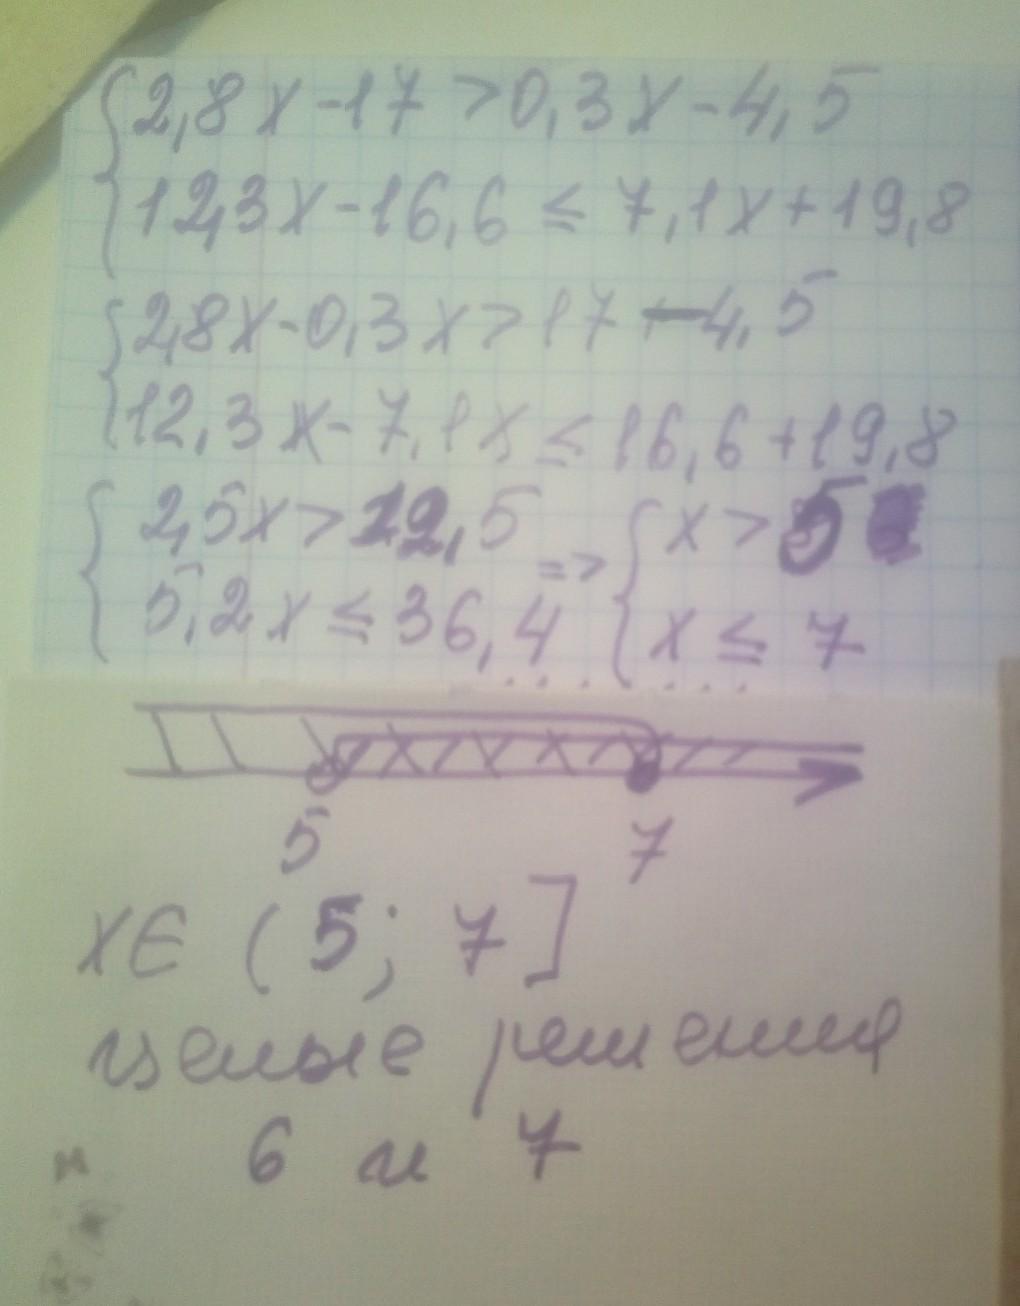 {2,8x-17>0,3x-4,5
{12,3x-16,6≤7,1x+19,8
{2,8x-0,3x>17-4,5
{12,3x-7,1x≤16,6+19,8
{2,5x>12,5 => {x>5
{5,2x≤36,4 {x≤7
5 7
x∈(5; 7]
целые решения
6 и 7